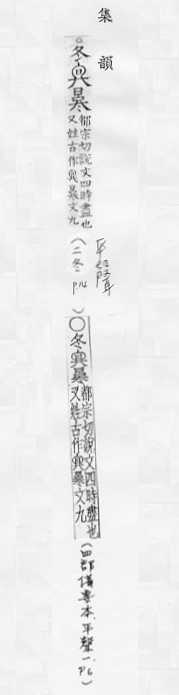 集韻
冬
都宗切說文四時盡也
又姓古作 文九
(二冬 P14)
○冬
都宗切說文四時盡也
又姓古作 文九
(四部備要本.平聲一.P6)